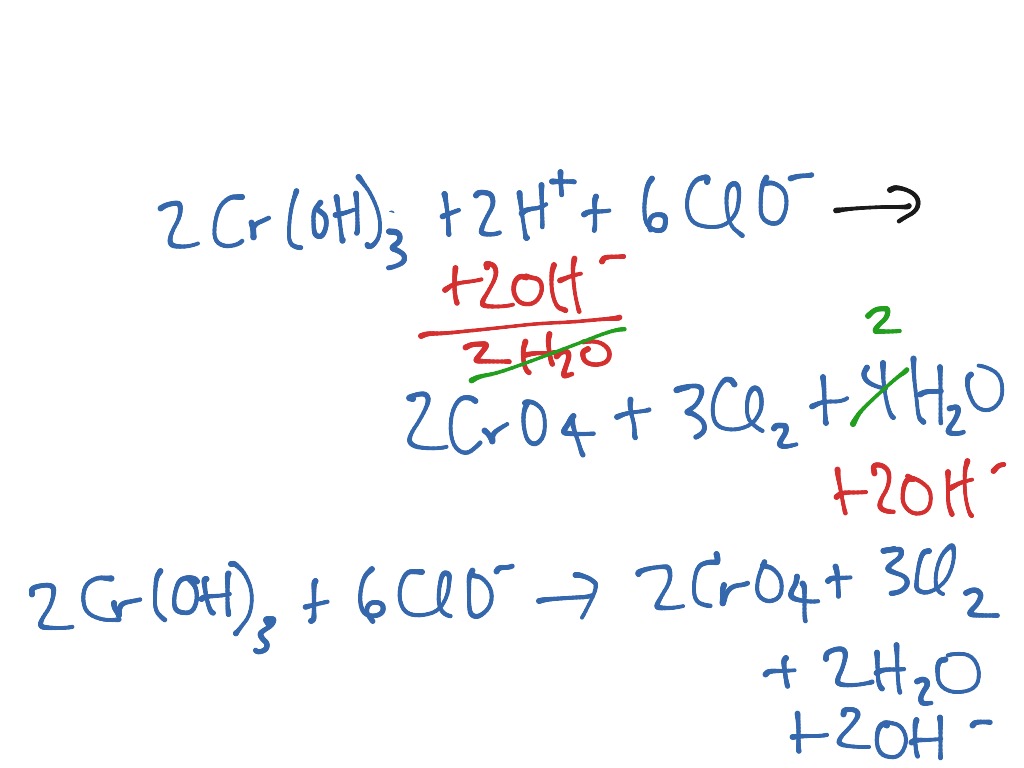 2Cr(OH)₃ + 2H⁺ + 6ClO⁻ →
+2OH⁻
2H₂O
2
2CrO₄ + 3Cl₂ + 4H₂O
+2OH⁻
2Cr(OH)₃ + 6ClO⁻ → 2CrO₄ + 3Cl₂
+ 2H₂O
+2OH⁻